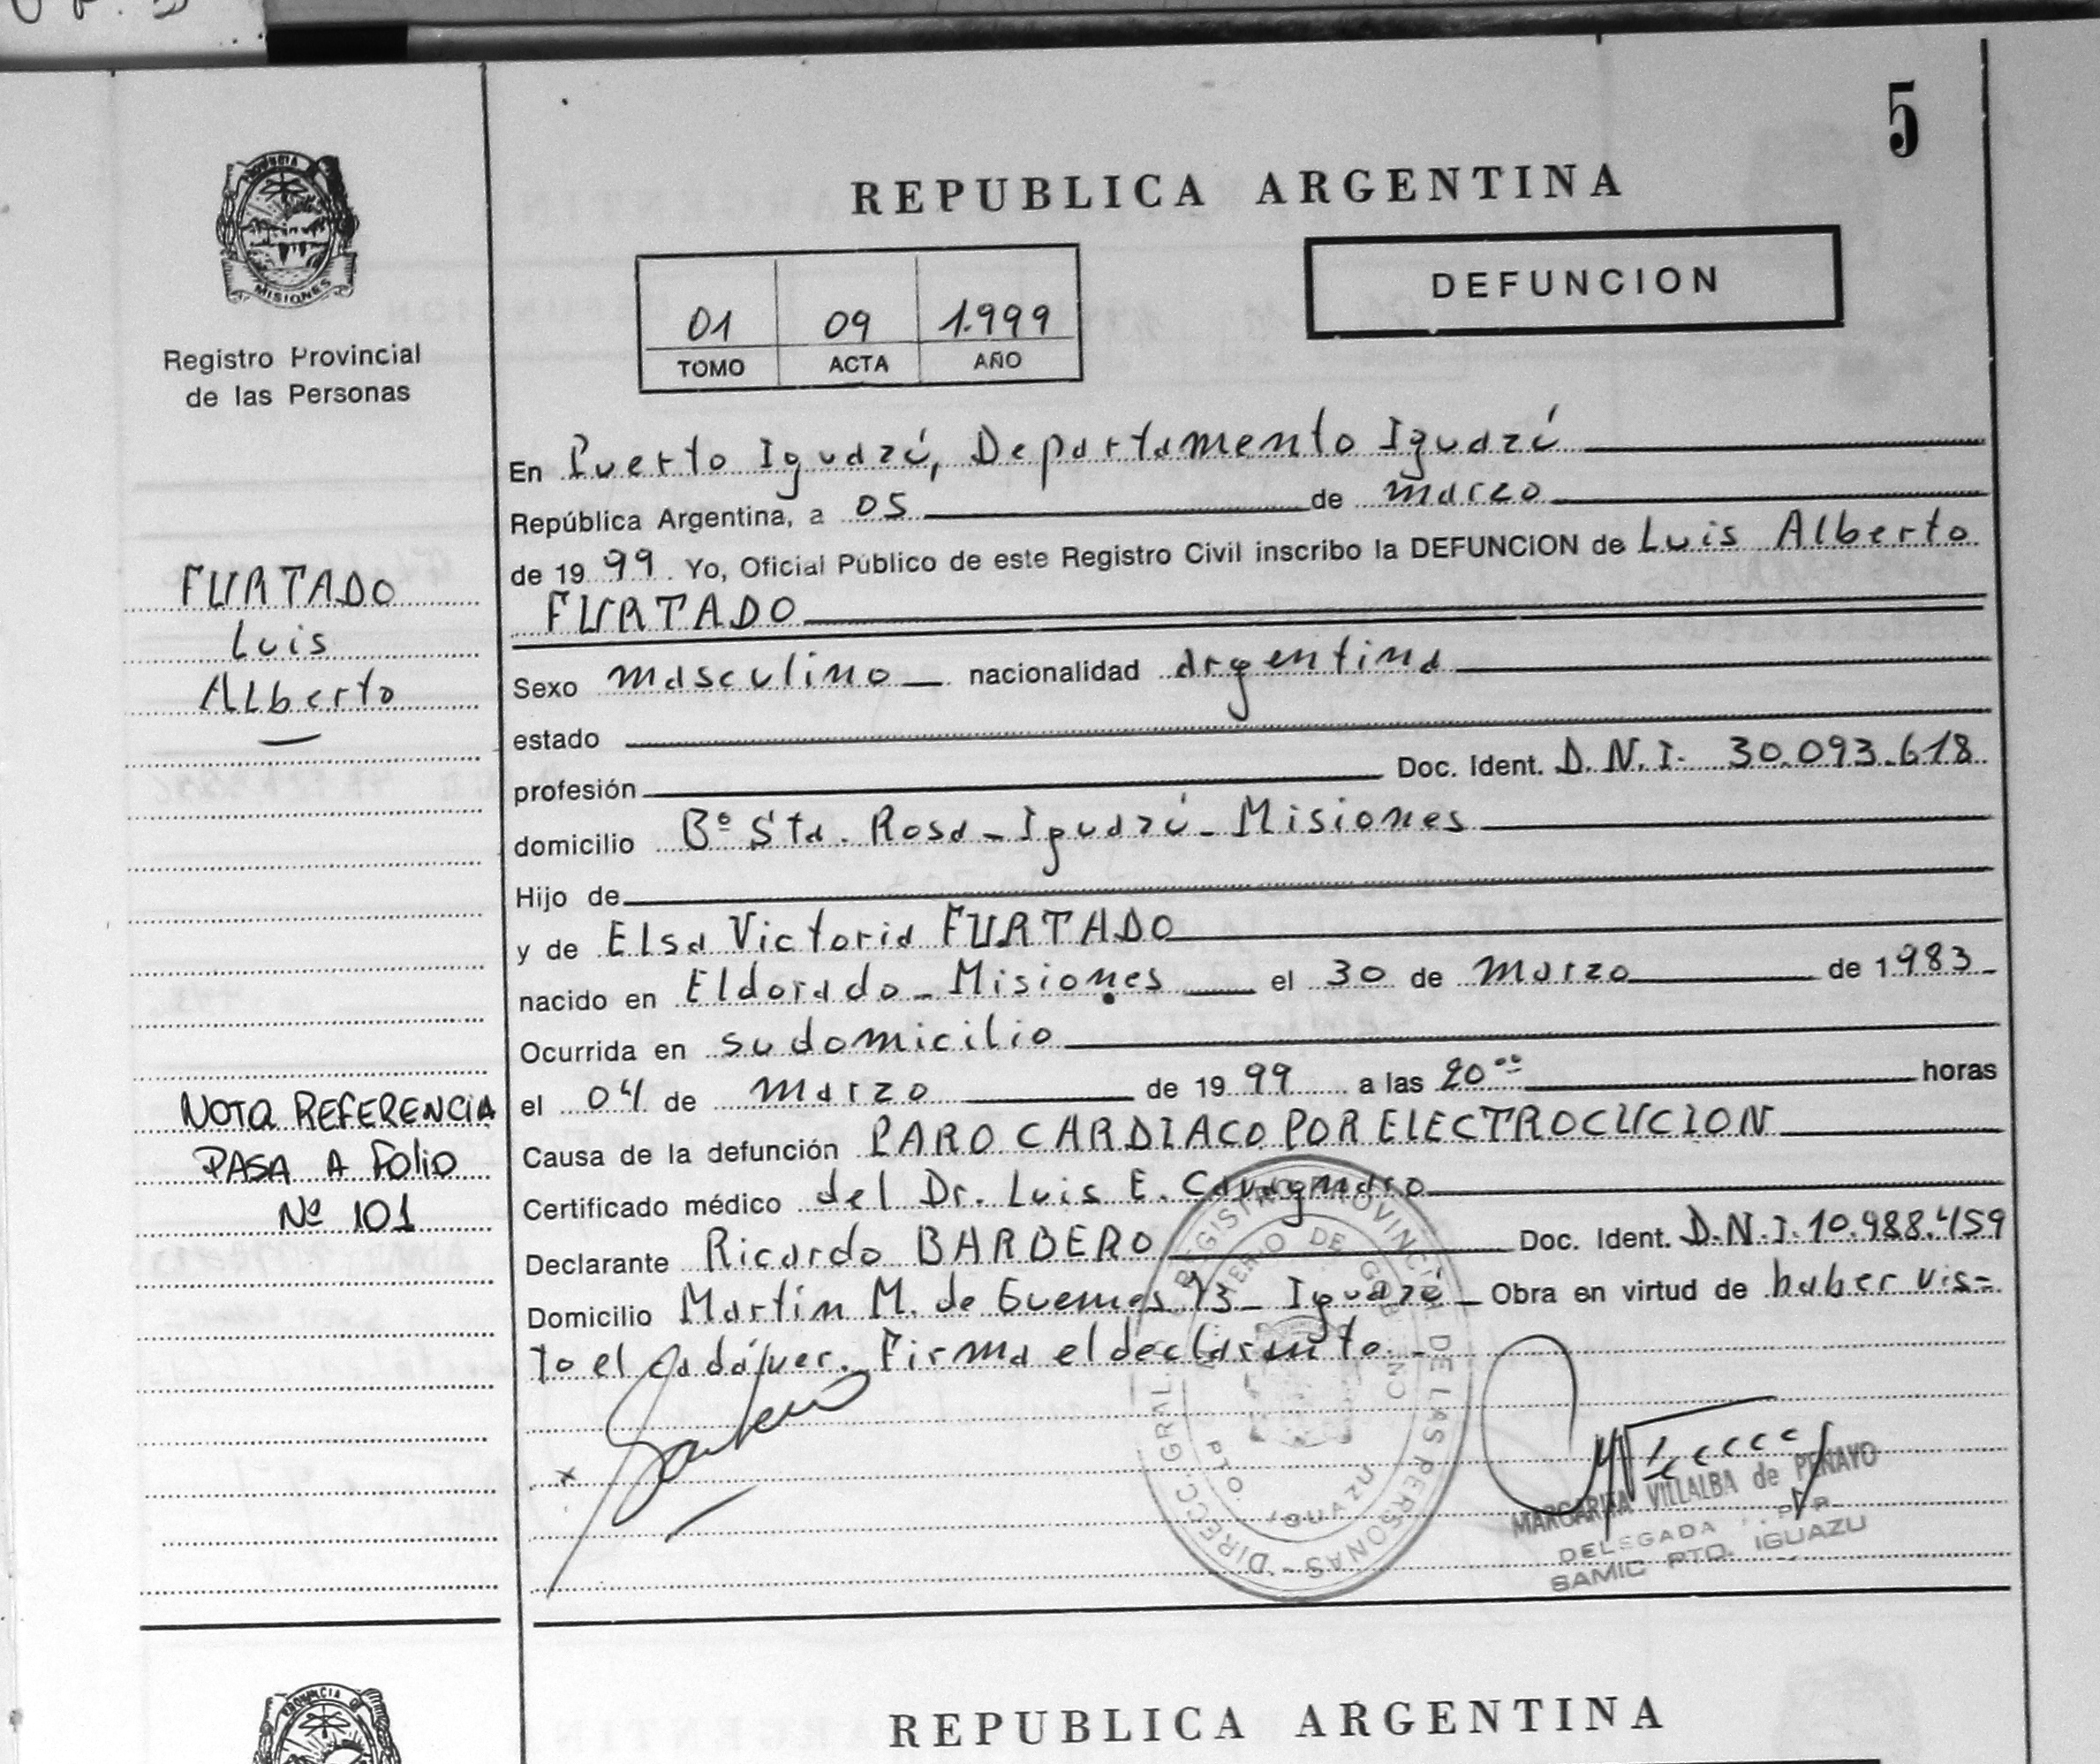 5
PROVINCIA DE
MISIONES
Registro Provincial
de las Personas
REPUBLICA ARGENTINA
DEFUNCION
01 09 1.999
TOMO ACTA AÑO
FURTADO
Luis
Alberto
NOTA REFERENCIA
PASA A FOLIO
Nº 101
En Puerto Iguazú, Departamento Iguazú
República Argentina, a 05 de marzo
de 19 99 Yo, Oficial Público de este Registro Civil inscribo la DEFUNCION de Luis Alberto
FURTADO
Sexo masculino nacionalidad argentina
estado
profesión Doc. Ident. D.N.I. 30.093.618
domicilio Bº Sta. Rosa - Iguazú - Misiones
Hijo de
y de Elsa Victoria FURTADO
nacido en Eldorado - Misiones el 30 de Marzo de 1983
Ocurrida en su domicilio
el 04 de marzo de 19 99 a las 20⁰⁰ horas
Causa de la defunción PARO CARDIACO POR ELECTROCUCION
Certificado médico del Dr. Luis E. Cavagnaro
Declarante Ricardo BARBERO Doc. Ident. D.N.I. 10.988.459
Domicilio Martín M. de Guemes 93 - Iguazú - Obra en virtud de haber vis=
to el cadáver. Firma el declarante.
DIRECC. GRAL. REGISTRO PROVINCIAL DE LAS PERSONAS
PTO. IGUAZU
MARGARITA VILLALBA de PENAYO
DELEGADA
SAMIC PTO. IGUAZU
PROVINCIA DE
REPUBLICA ARGENTINA